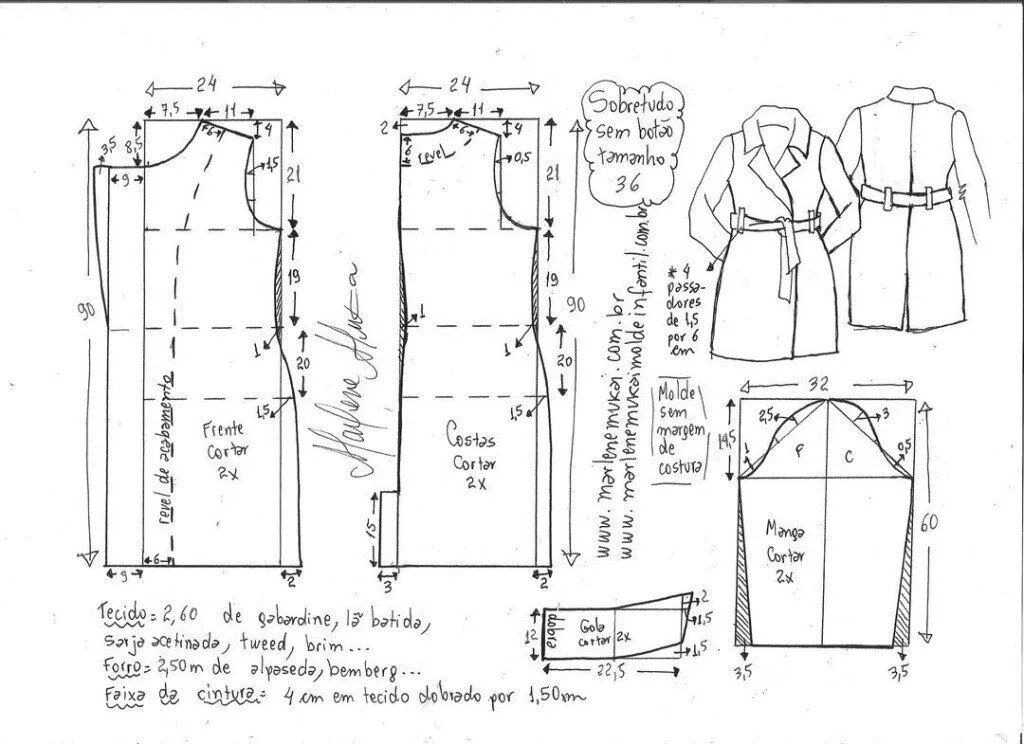 24
7,5
11
3,5
8,5
6
4
1,5
9
21
19
90
1
20
1,5
revel de acabamento
Frente
cortar
2x
6
9
2
24
7,5
11
2
6
6
4
revel
0,5
21
19
90
1
1
20
1,5
Costas
Cortar
2x
15
3
2
Marlene Mukai
Sobretudo
sem botão
tamanho
36
www.marlenemukai.com.br
www.marlenemukaimoldeinfantil.com.br
* 4
passa-
dores
de 1,5
por 6
cm
Molde
sem
margem
de
costura
32
14,5
2,5
3
1
0,5
F
C
60
Manga
Cortar
2x
3,5
3,5
12
dobra
Gola
cortar 2x
2
1,5
1,5
22,5
Tecido = 2,60 de gabardine, lã batida,
sarja acetinada, tweed, brim...
Forro = 2,50m de alpaseda, bemberg...
Faixa da cintura = 4 cm em tecido dobrado por 1,50m